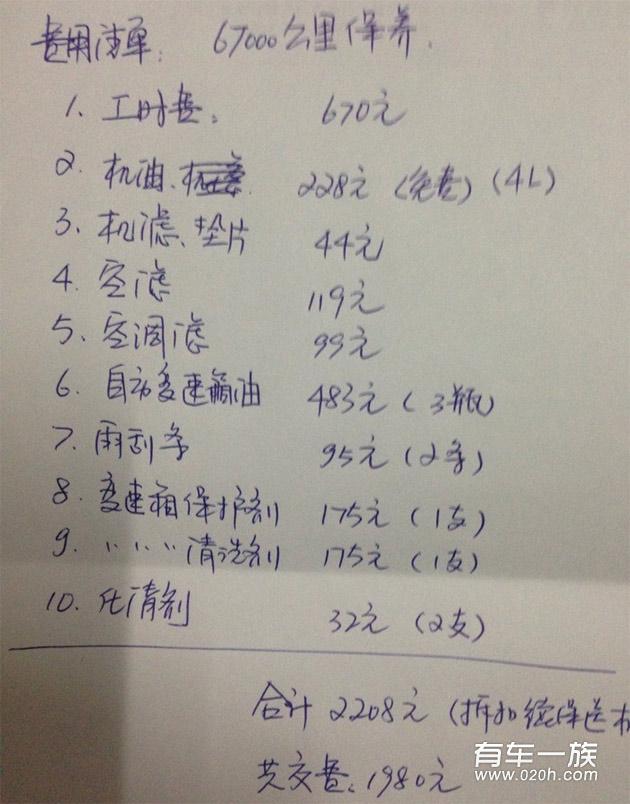 费用清单: 67000公里保养.
1. 工时费: 670元
2. 机油、 228元 (免费) (4L)
3. 机滤、垫片 44元
4. 空滤 119元
5. 空调滤 99元
6. 自动变速箱油 483元 (3瓶)
7. 雨刮条 95元 (2条)
8. 变速箱保护剂 175元 (1支)
9. 〃〃〃清洗剂 175元 (1支)
10. 化清剂 32元 (2支)
合计 2208元 (折扣续保送机
共交费: 1980元
有车一族
www.020h.com